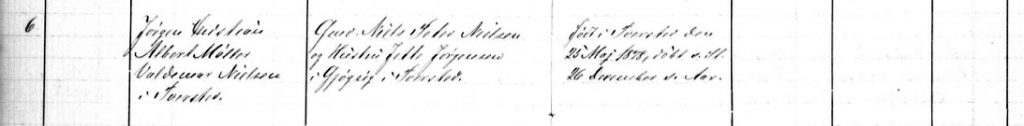 6
Jørgen Christian
Albert Møller
Valdemar Nielsen
i Tversted.
Gmd. Niels Peter Nielsen
og Hustru Jette Jørgensen
i i Tversted.
født i Tversted den
25 Maj 1878, døbt s. St.
26 December s. Aar.